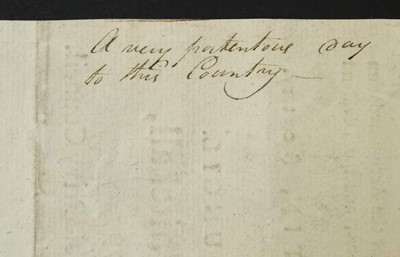 A very portentous day
to this Country —